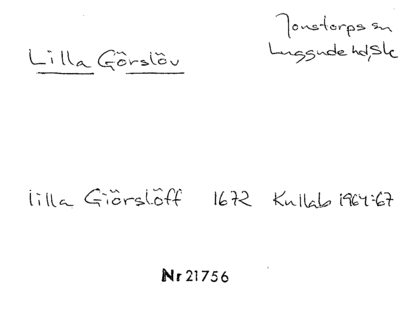 Lilla Görslöv
Jonstorps sn
Luggude hd, Sk
lilla Giörslöff 1672 Kullab 1964:67
Nr 21756